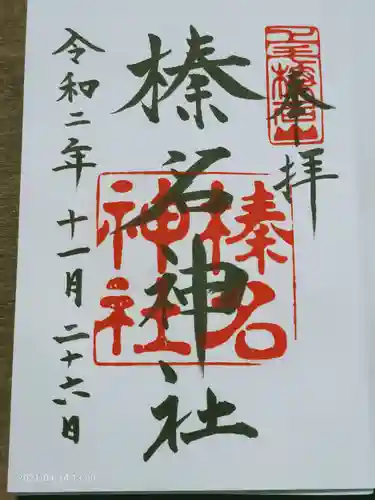 奉拝
上毛榛名山
榛名神社
榛名神社
令和二年十一月二十六日